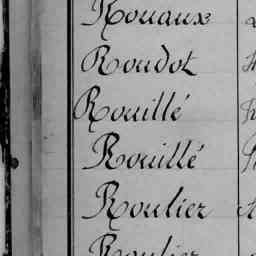 Rouaux
Roudot
Rouillé
Rouillé
Roulier
Roulier